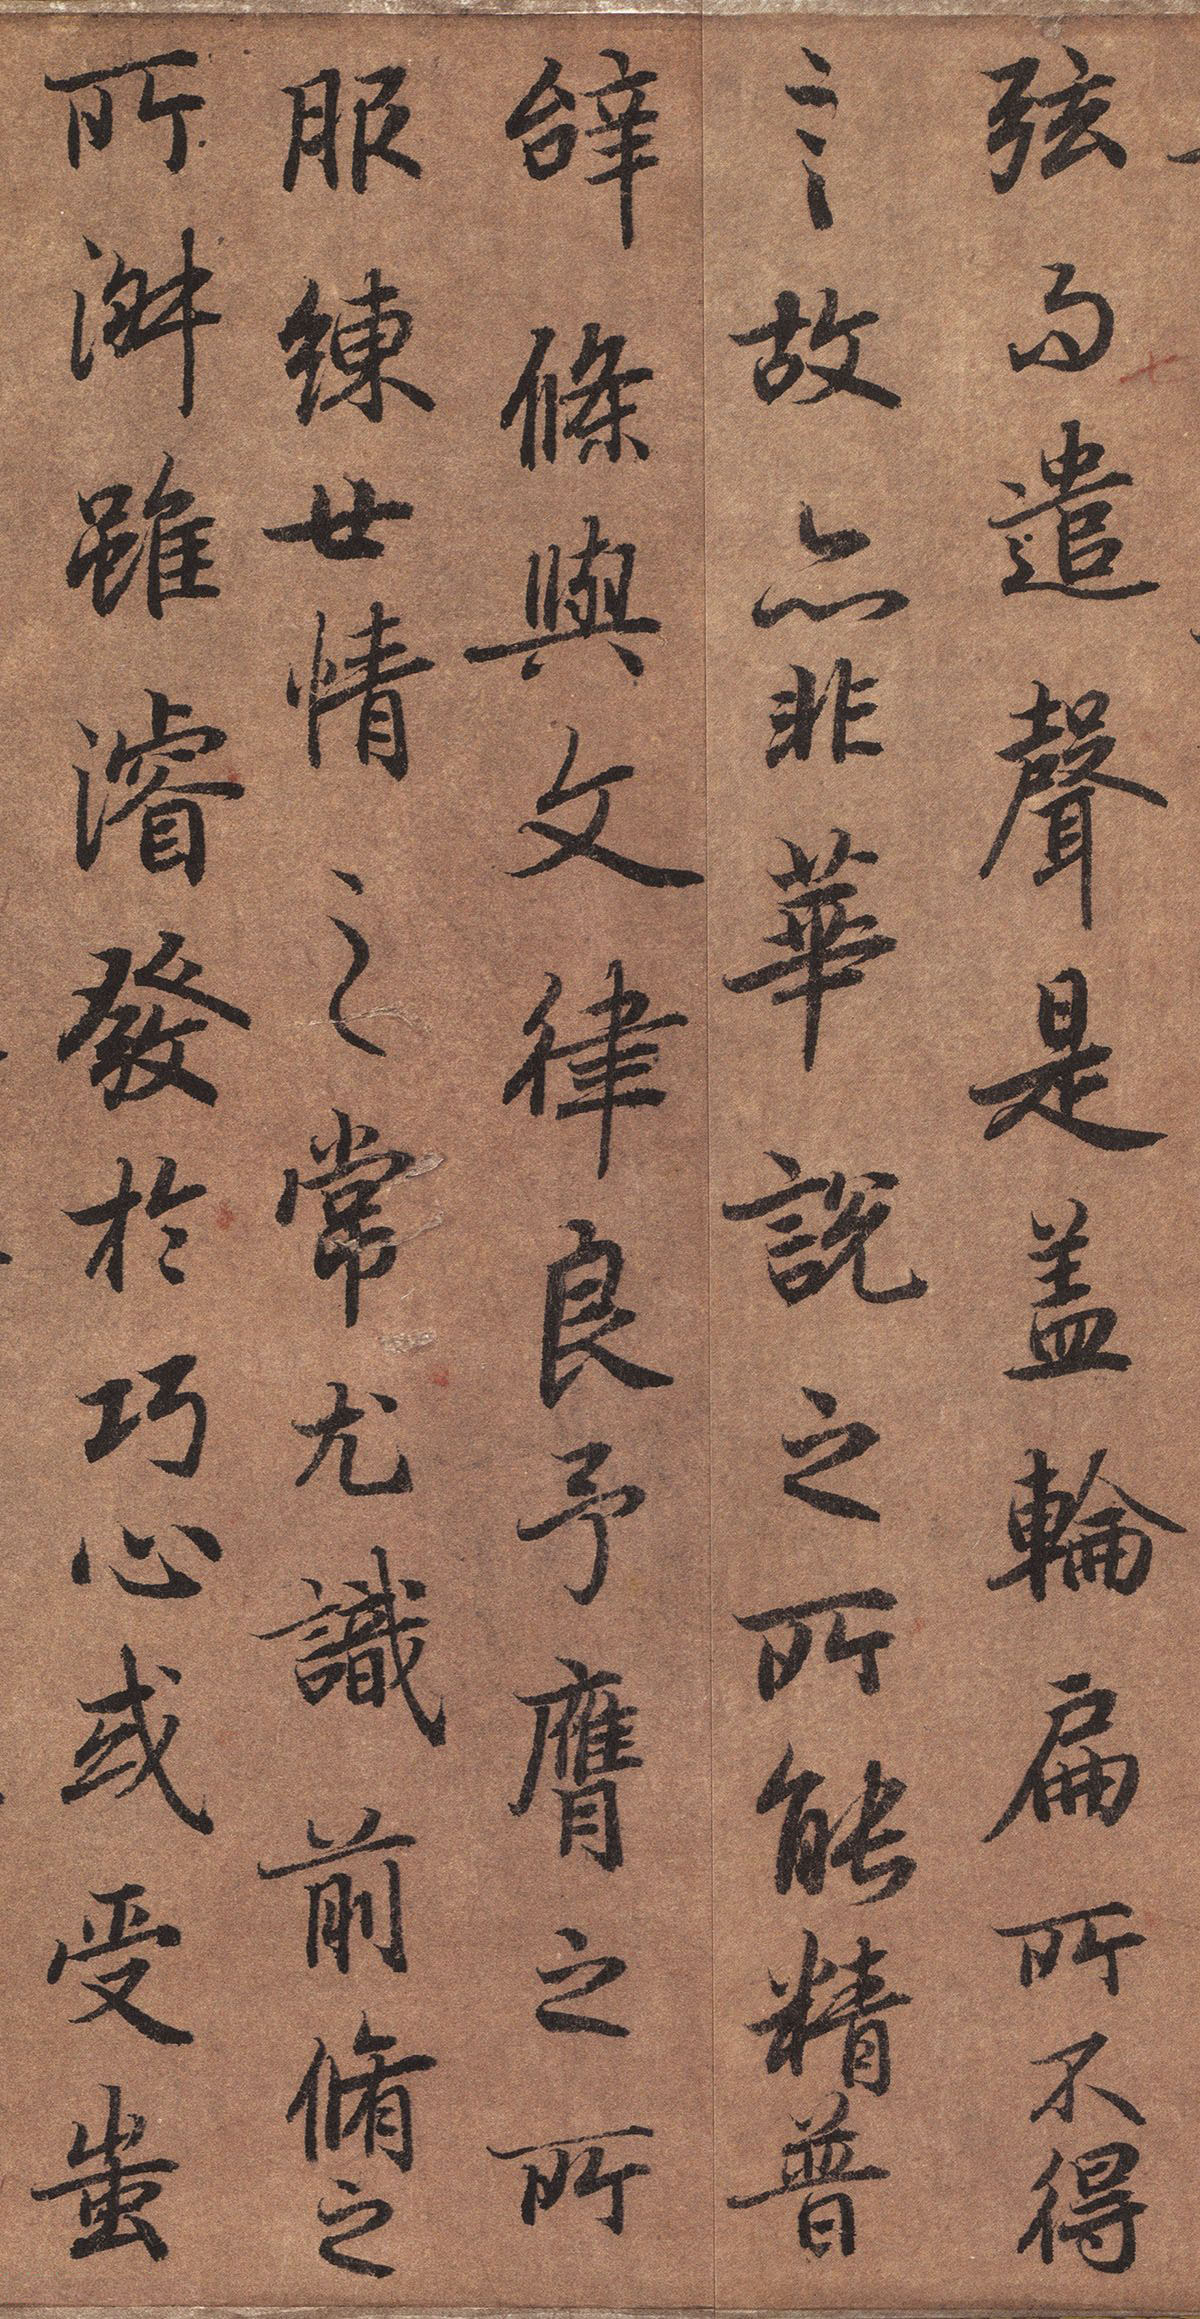 弦而遣聲是盖輪扁所不得
言故亦非華說之所能精普
辝條與文律良予膺之所
服練世情之常尤識前脩之
所淑雖濬發於巧心或受蚩